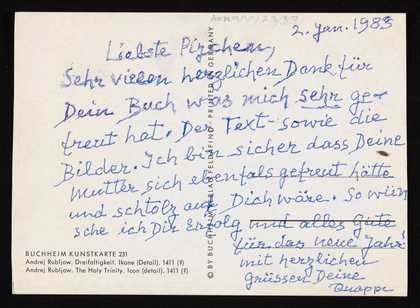 2. Jan. 1983
Liebste Pizchen,
Sehr vielen herzlichen Dank für
Dein Buch was mich sehr ge-
freut hat. Der Text - sowie die
Bilder. Ich bin sicher dass Deine
Mutter sich ebenfals gefreut hätte
und schtolz auf Dich wäre. So wün
sche ich Dir Erfolg und alles Gute
für das neue Jahr
mit herzlichen
Grüssen Deine
BUCHHEIM KUNSTKARTE 231
Andrej Rubljow. Dreifaltigkeit. Ikone (Detail). 1411 (?)
Andrej Rubljow. The Holy Trinity. Icon (detail). 1411 (?)
© BY BUCHHEIM VERLAG FELDAFING · PRINTED IN GERMANY